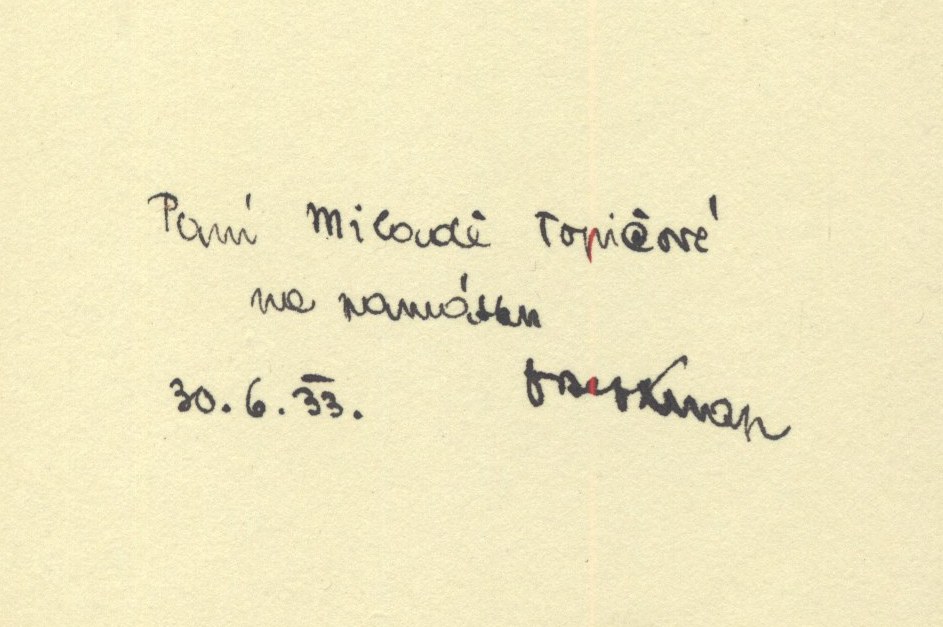 Paní Miladě Topičové
na památku
30. 6. 33.